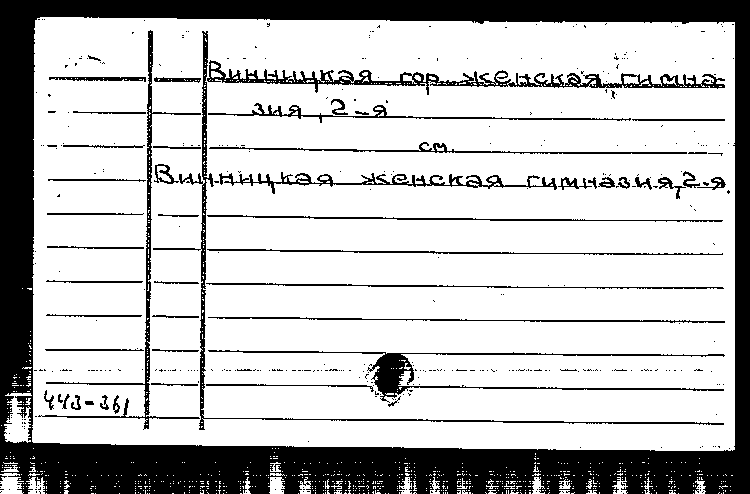 Винницкая гор. женская гимна-
зия, 2-я
см.
Винницкая женская гимназия, 2-я.
443-361